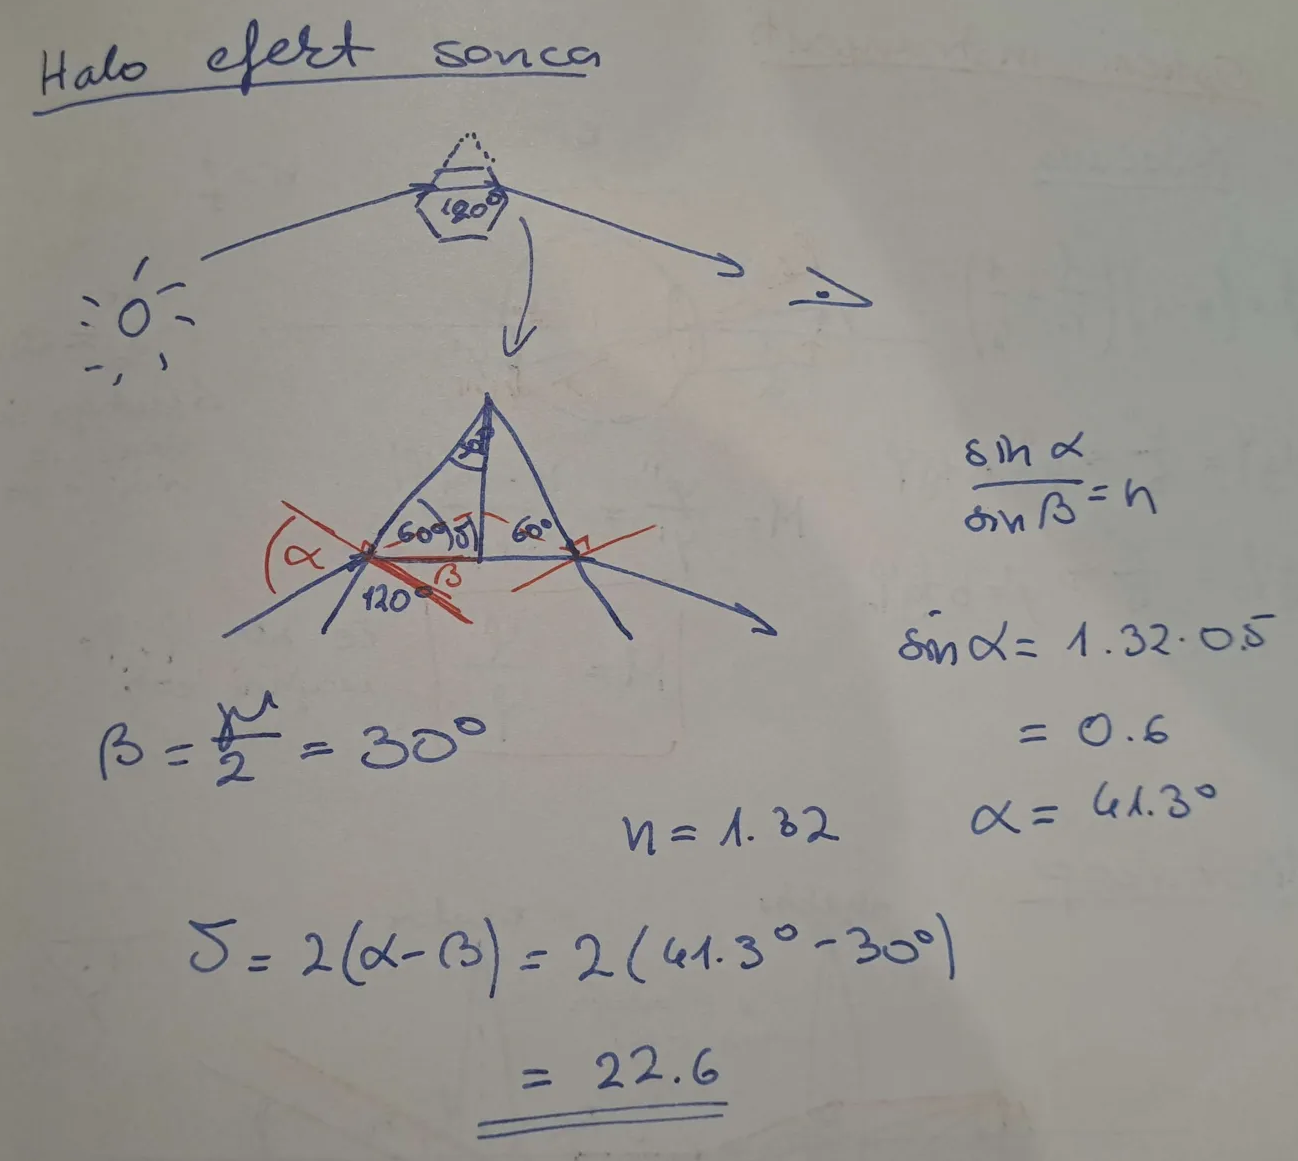 Halo efekt sonca
120°
30°
60° δ 60°
α
β
120°
sin α / sin β = n
sin α = 1.32 · 0.5
= 0.6
α = 41.3°
β = μ/2 = 30°
n = 1.32
δ = 2(α-β) = 2(41.3° - 30°)
= 22.6